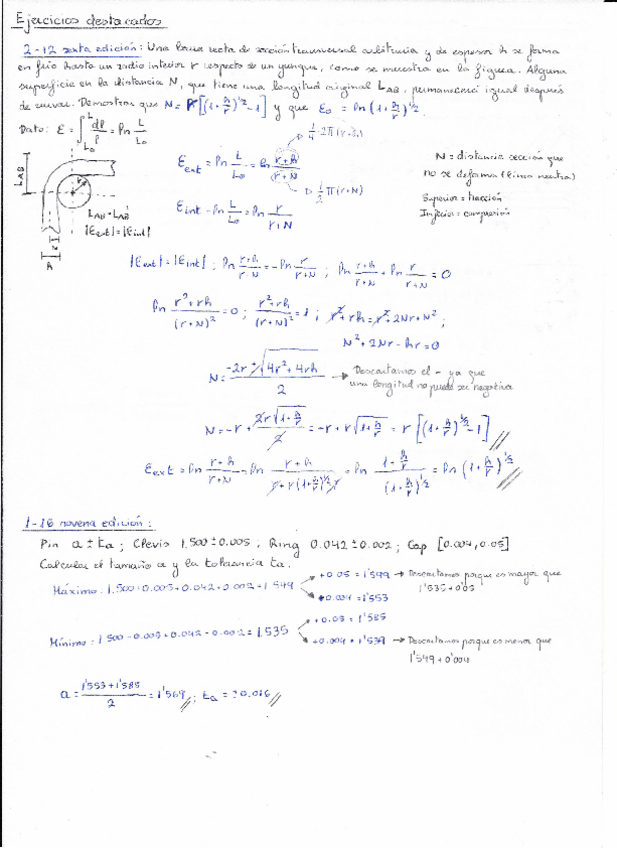 Ejercicios destacados
2-12 sexta edición: Una barra recta de sección transversal arbitraria y de espesor h se forma
en frío hasta un radio interior r respecto de un yunque, como se muestra en la figura. Alguna
superficie en la distancia N, que tiene una longitud original L_AB, permanecerá igual después
de curvar. Demostrar que N = R[(1+h/r)^1/2 - 1] y que ε₀ = ln(1+h/r)^1/2.
Dato: ε = ∫_L₀^L dl/l = ln L/L₀
1/4·2π(r+h)
ε_ext = ln L/L₀ = ln (r+h)/(r+N)
1/2 π(r+N)
N = distancia sección que
no se deforma (línea neutra)
Superior = tracción
Inferior = compresión
ε_int = ln L/L₀ = ln r/(r+N)
L_AB
L_AB = L_AB
|ε_ext| = |ε_int|
h
|ε_ext| = |ε_int| ; ln (r+h)/(r+N) = -ln r/(r+N) ; ln (r+h)/(r+N) + ln r/(r+N) = 0
ln (r²+rh)/(r+N)² = 0 ; (r²+rh)/(r+N)² = 1 ; r²+rh = r²+2Nr+N² ;
N²+2Nr-hr=0
N = (-2r ± √(4r²+4rh))/2 → Descartamos el - ya que
una longitud no puede ser negativa
N = -r + 2r√(1+h/r)/2 = -r + r√(1+h/r) = r[(1+h/r)^1/2 - 1]
ε_ext = ln (r+h)/(r+N) = ln (r+h)/(r+r(1+h/r)^1/2-r) = ln (1+h/r)/(1+h/r)^1/2 = ln(1+h/r)^1/2
1-16 novena edición:
Pin a ± ta ; Clevis 1.500 ± 0.005 ; Ring 0.042 ± 0.002 ; Gap [0.004, 0.05]
Calcular el tamaño a y la tolerancia ta.
Máximo: 1.500+0.005+0.042+0.002=1.549
+0.05 = 1'599 → Descartamos porque es mayor que
1'535+0'05
+0.004 = 1'553
Mínimo: 1.500-0.005+0.042-0.002=1.535
+0.05 = 1'585
+0.004 = 1'539 → Descartamos porque es menor que
1'549+0'004
a = (1'553+1'585)/2 = 1'569 ; ta = ±0.016